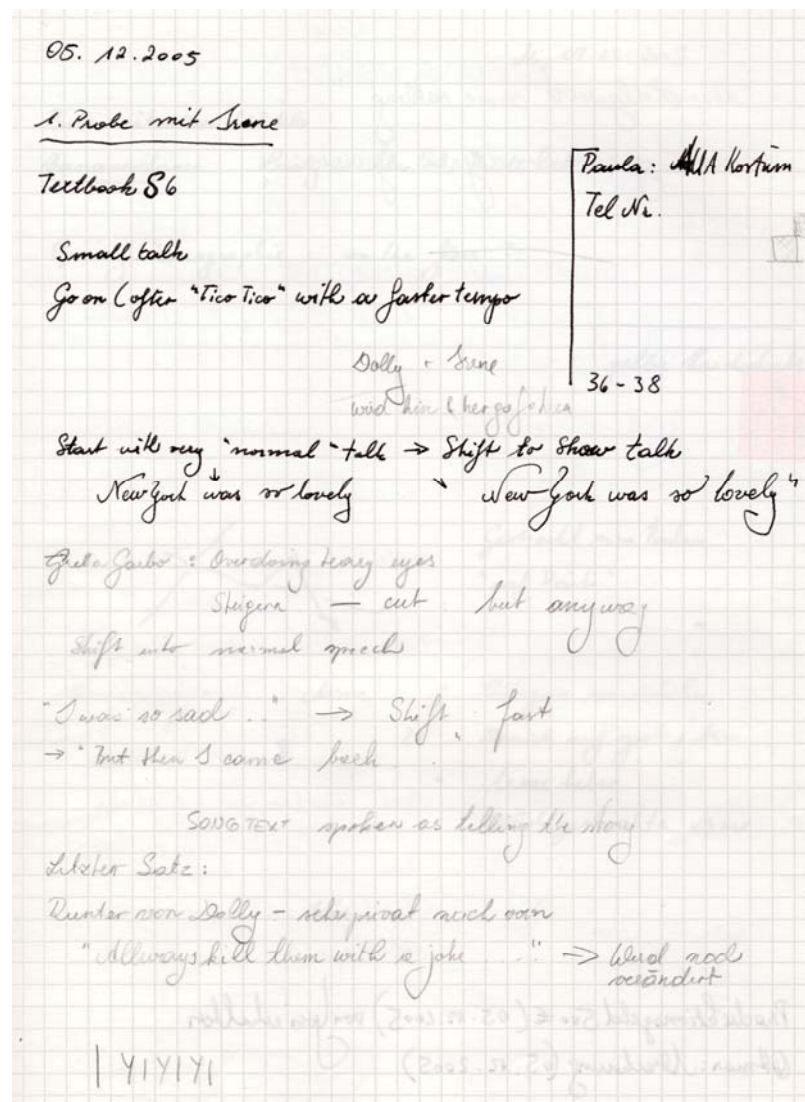 05.12.2005
1. Probe mit Irene
Textbook S6
Paula: Kostüm
Tel Nr.
36-38
Small talk
Go on (after "Tico Tico" with a faster tempo
Dolly + Irene
wird hin & hergefahren
Start with very "normal" talk → Shift to Show talk
New York was so lovely " New York was so lovely"
Greta Garbo: Overdoing teary eyes
Steigern — cut but anyway
Shift into normal speech
"I was so sad .." → Shift fast
→ "But then I came back . . "
SONGTEXT spoken as telling the story
Letzter Satz:
Runter von Dolly - sehr privat nach vorn
"Allways kill them with a joke ..." → Wird noch
verändert